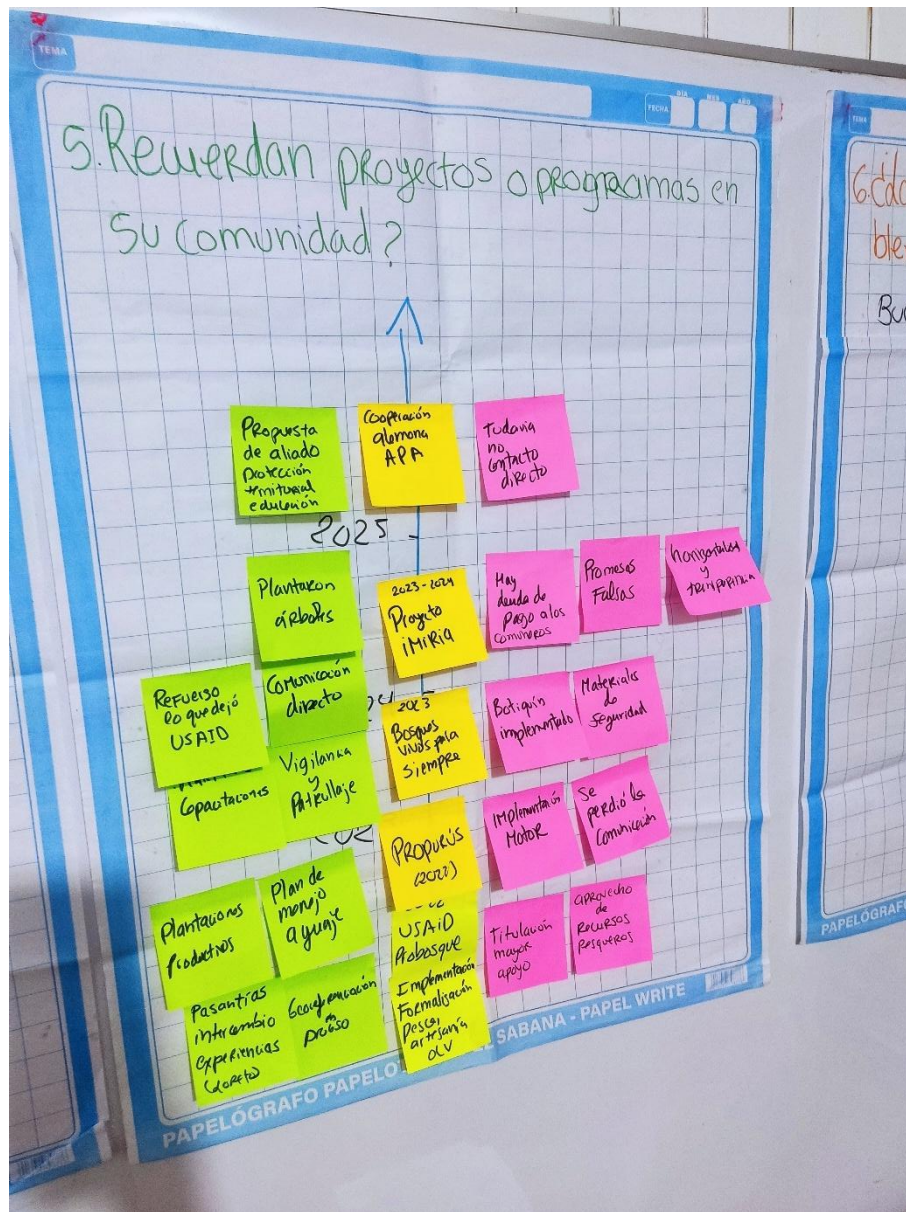 TEMA
FECHA
DÍA
MES
AÑO
5. Recuerdan proyectos o programas en
su comunidad?
Propuesta
de aliado
protección
territorial
educación
Cooperación
alemana
APA
Todavia
no
contacto
directo
2025
Plantaron
árboles
2023-2024
Proyecto
iMiRia
Hay
deuda de
Pago a los
comuneros
Promesas
Falsas
horizontales
y
Refuerso
lo que dejó
USAID
Comunicación
directo
Bosques
vivos para
siempre
Botiquin
implementado
Materiales
de
seguridad
Capacitaciones
Vigilancia
y
Patrullaje
PROPURÚS
Implementación
MOTOR
Se
perdió la
Comunicación
Plantaciones
Productivos
Plan de
manejo
aguaje
USAID
Probosque
Titulación
mayor
apoyo
aprovecho
de
Recursos
Pesqueros
Pasantias
intercambio
experiencias
(Loreto)
proceso
Implementación
Formalisación
Pesca,
artesanía
OLV
PAPELÓGRAFO PAPELO
SABANA - PAPEL WRITE
TEMA
6.
ble
PAPELÓGRAF